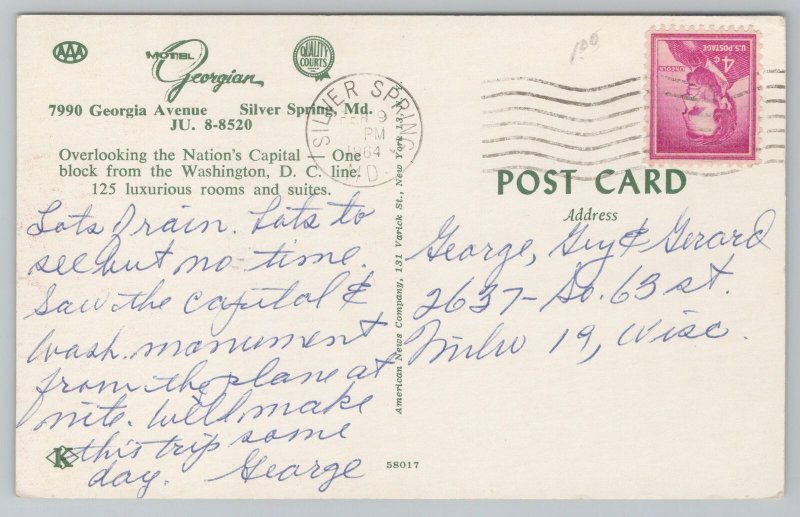 AAA
MOTEL
Georgian
QUALITY
COURTS
7990 Georgia Avenue Silver Spring, Md.
JU. 8-8520
Overlooking the Nation's Capital — One
block from the Washington, D. C. line.
125 luxurious rooms and suites.
Lots of rain. Lots to
see but no time.
Saw the capitol &
Wash. monument
from the plane at
nite. Will make
this trip some
day. George
K
American News Company, 131 Varick St., New York 13,
58017
SILVER SPRING
9
PM
1964
MD.
1.00
U.S. POSTAGE
4¢
LINCOLN
POST CARD
Address
George, Guy & Gerard
2637- So. 63 st.
Milw 19, Wisc.